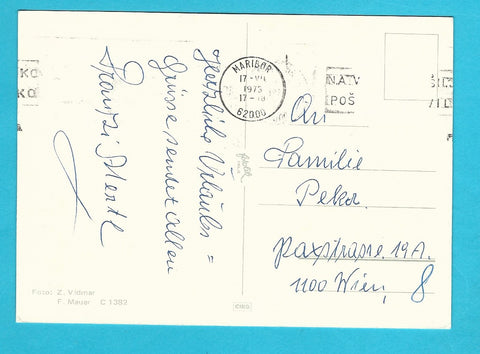 Herzliche Urlaubs =
Grüsse sendet allen
MARIBOR
17-VII
1975
17-18
62000
KO
N.A.V
POŠ
An
Familie
Pekar
Paxstrasse 19A.
1100 Wien, 8
Foto: Z. Vidmar
F. Mauer C 1382